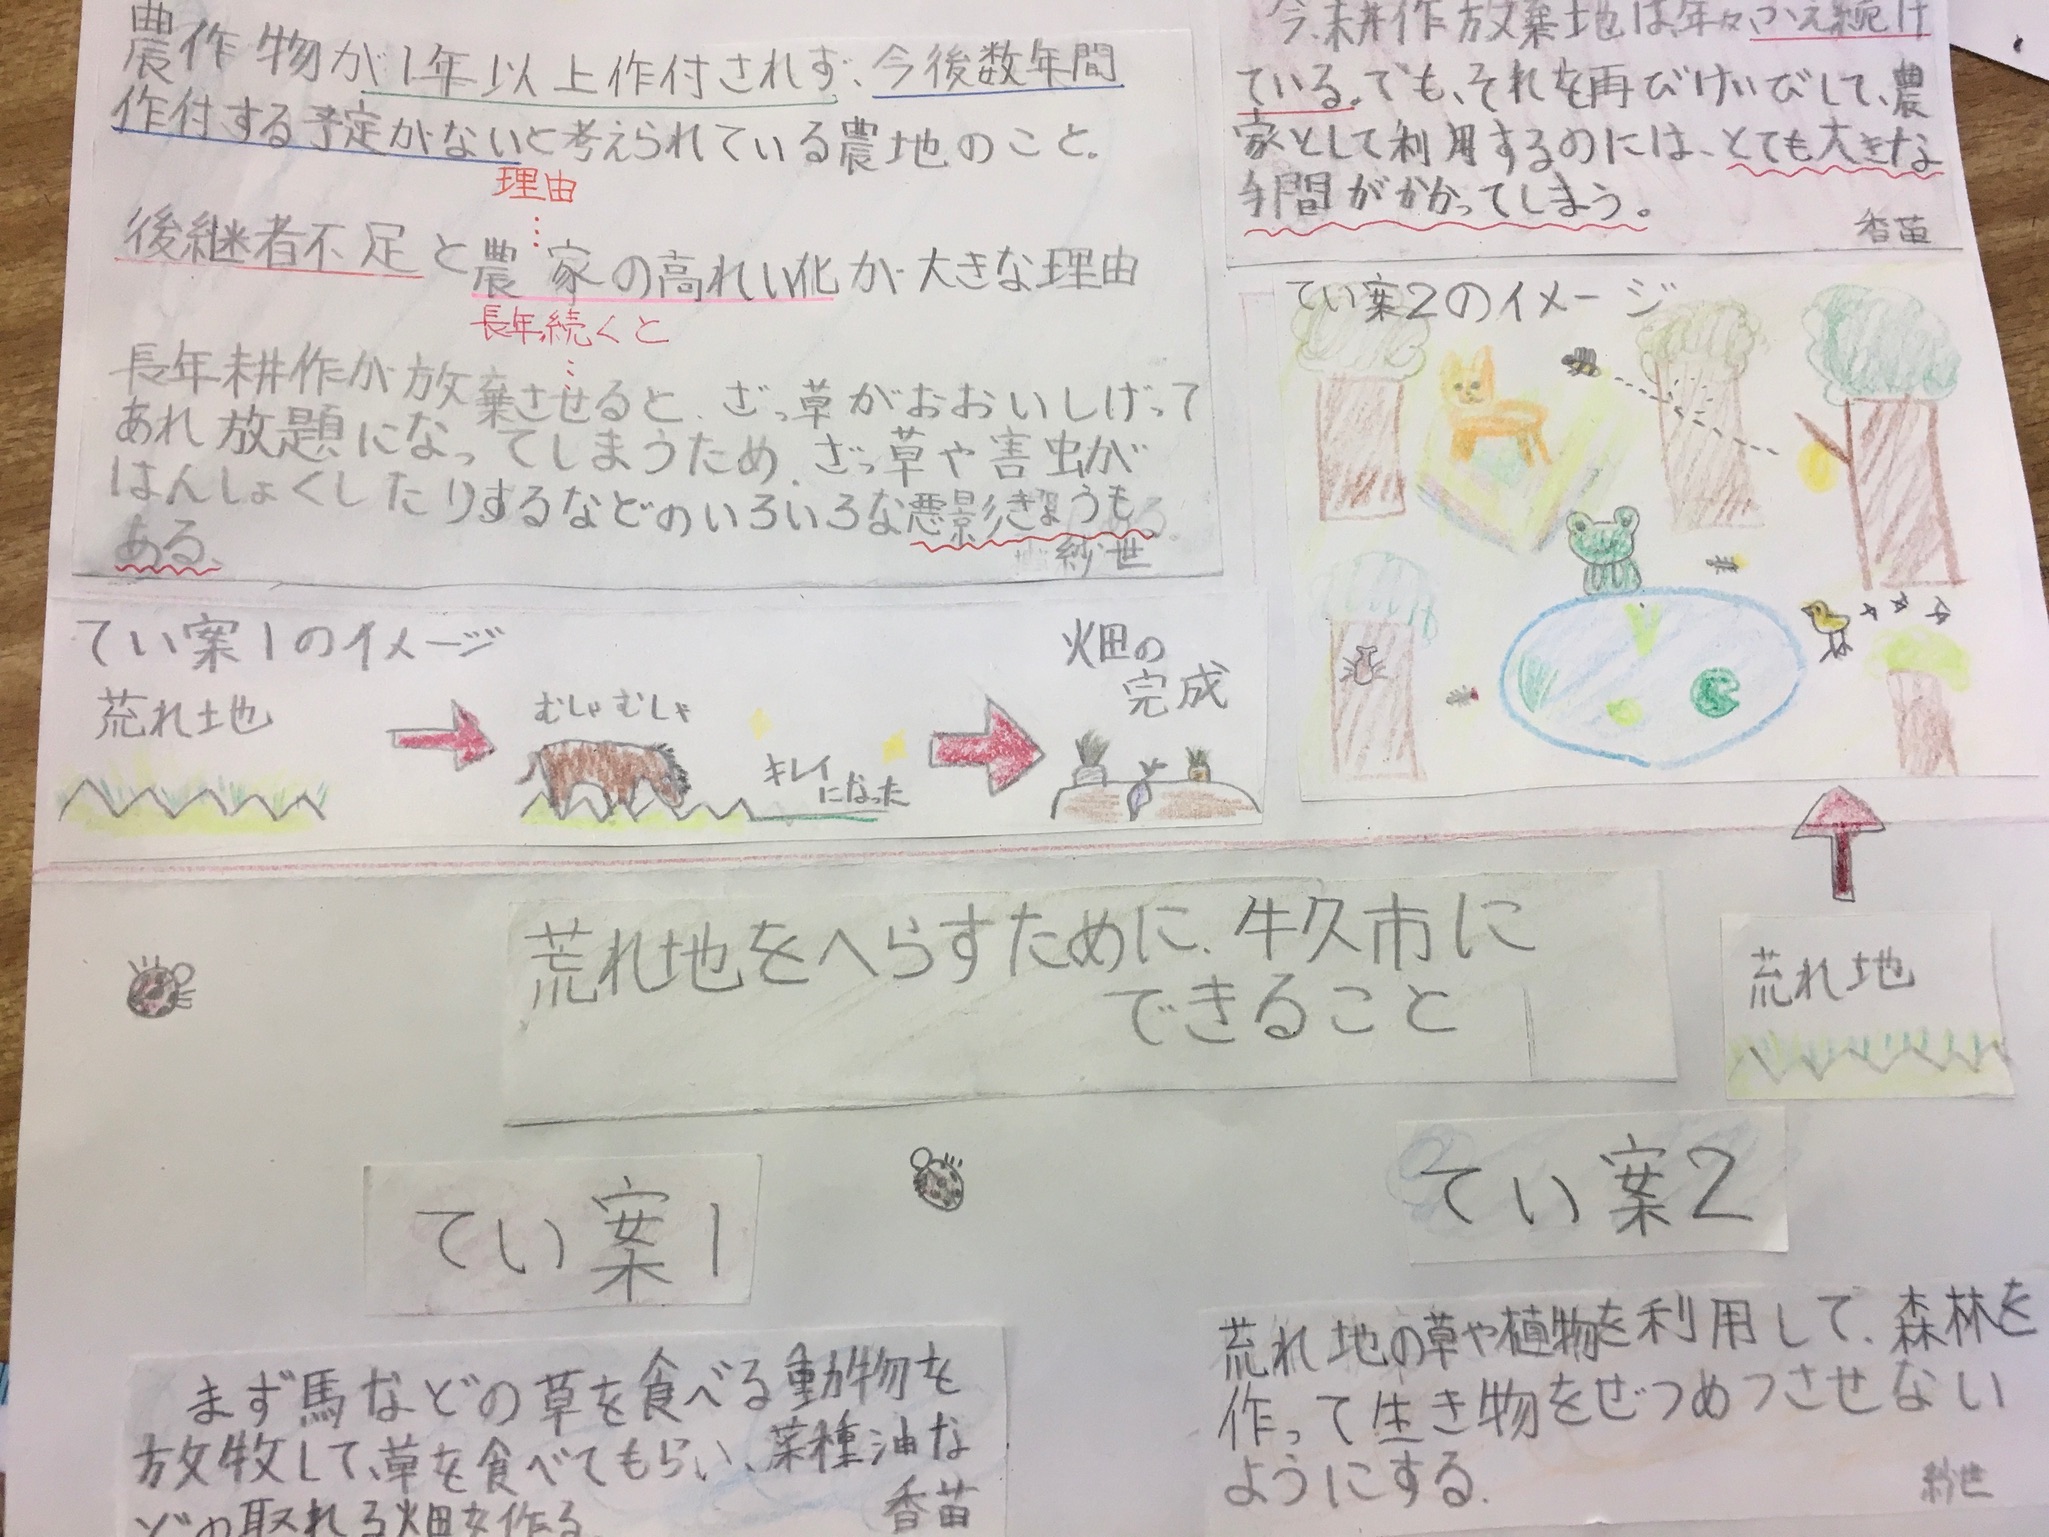 農作物が1年以上作付されず、今後数年間
作付する予定がないと考えられている農地のこと。
理由
後継者不足と農家の高れい化が大きな理由
長年続くと
長年耕作が放棄させると、ざっ草がおおいしげって
あれ放題になってしまうため、ざっ草や害虫が
はんしょくしたりするなどのいろいろな悪影きょうも
ある。
紗世
今、耕作放棄地は、年々、ふえ続け
ている。でも、それを再びけいびして、農
家として利用するのには、とても大きな
手間がかかってしまう。
香苗
てい案2のイメージ
てい案1のイメージ
荒れ地
むしゃむしゃ
キレイ
になった
畑の
完成
荒れ地をへらすために、牛久市に
できること
荒れ地
てい案1
まず馬などの草を食べる動物を
放牧して、草を食べてもらい、菜種油な
どの取れる畑を作る
香苗
てい案2
荒れ地の草や植物を利用して、森林を
作って生き物をぜつめつさせない
ようにする。
紗世